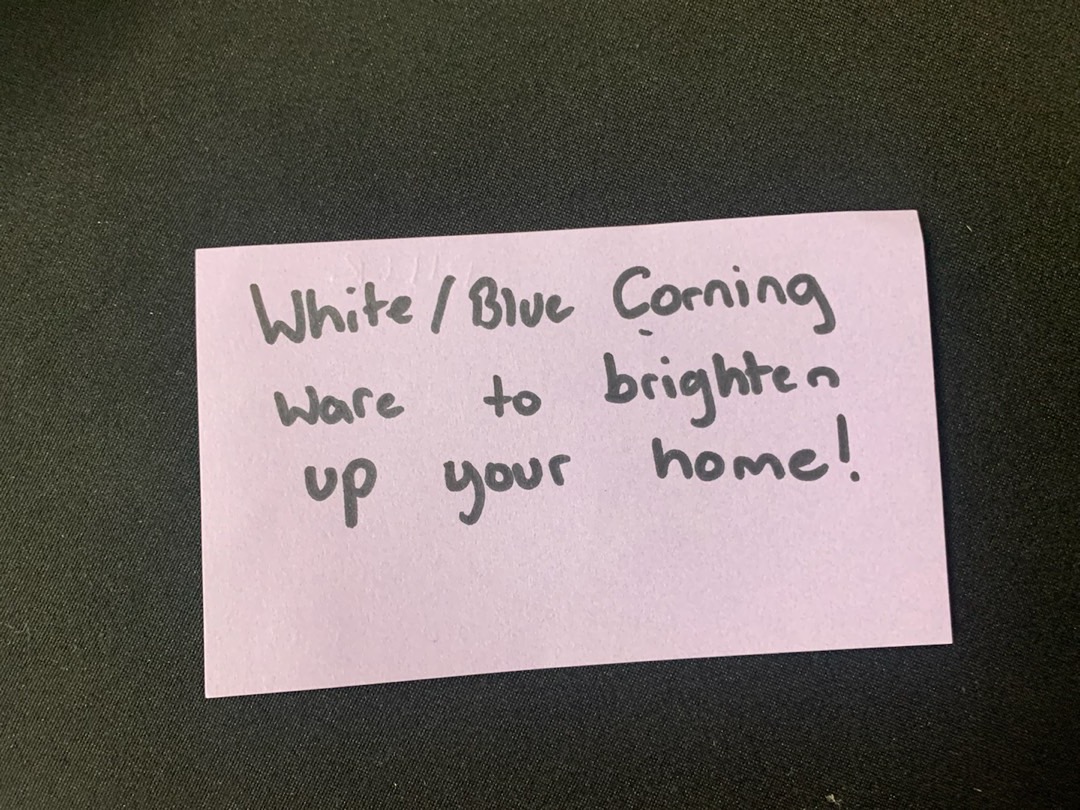 White/Blue Corning
Ware to brighten
up your home!